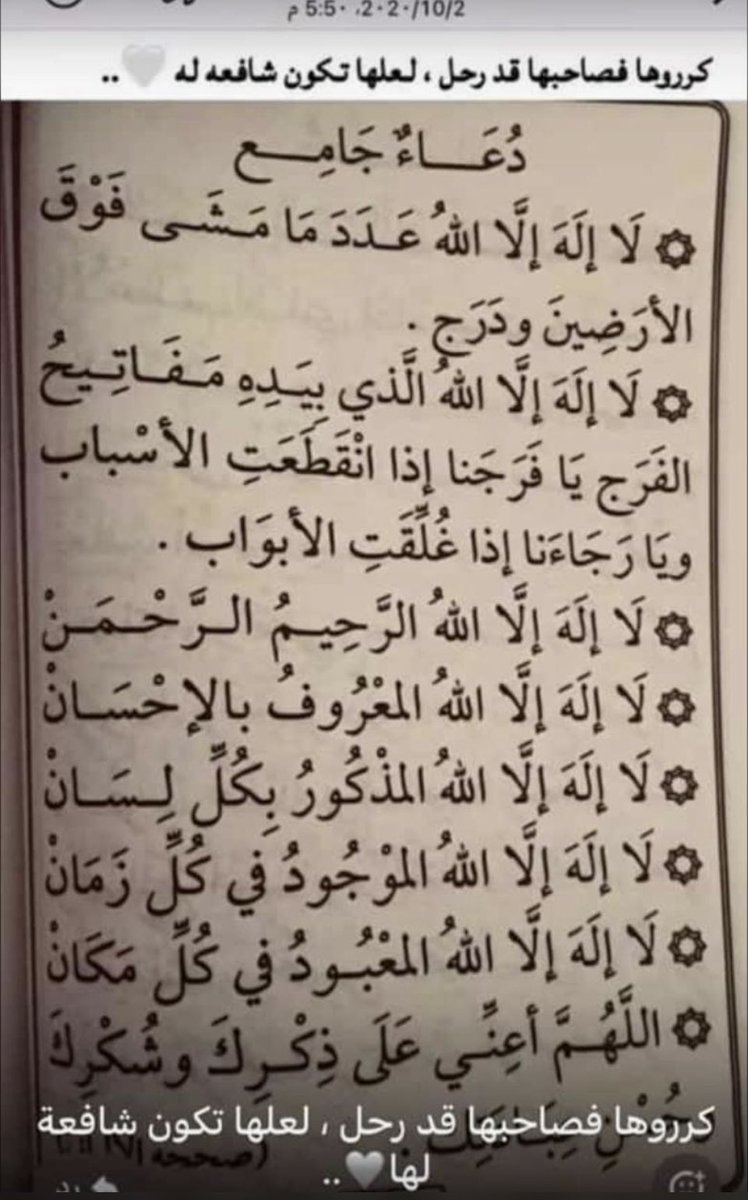 2٠2٠/10/2، 5:5٠ م
كرروها فصاحبها قد رحل ، لعلها تكون شافعه له 🤍..
دُعَـــاءٌ جَامِـــع
۞ لَا إِلَهَ إِلَّا اللهُ عَـدَدَ مَا مَـشَـى فَوْقَ
الأَرَضِينَ ودَرَج .
۞ لَا إِلَهَ إِلَّا اللهُ الَّذي بِيَـدِهِ مَـفَـاتِـيحُ
الفَرَج يَا فَرَجَنا إذا انْقَطَعَتِ الأسْباب
ويَا رَجَاءَنا إذا غُلِّقَتِ الأبوَاب .
۞ لَا إِلَهَ إِلَّا اللهُ الرَّحِيـمُ الـرَّحْـمَـنْ
۞ لَا إِلَهَ إِلَّا اللهُ المَعْرُوفُ بالإحْسَـانْ
۞ لَا إِلَهَ إِلَّا اللهُ المَذْكُورُ بِكُلِّ لِـسَـانْ
۞ لَا إِلَهَ إِلَّا اللهُ المَوْجُودُ في كُلِّ زَمَانْ
۞ لَا إِلَهَ إِلَّا اللهُ المَعْبُـودُ في كُلِّ مَكَانْ
۞ اللَّهُـمَّ أعِنِّـي عَلَى ذِكْـرِكَ وشُكْرِكَ
وحُسْنِ عِبَادَتِكَ .
كرروها فصاحبها قد رحل ، لعلها تكون شافعة
لها🤍..
رد